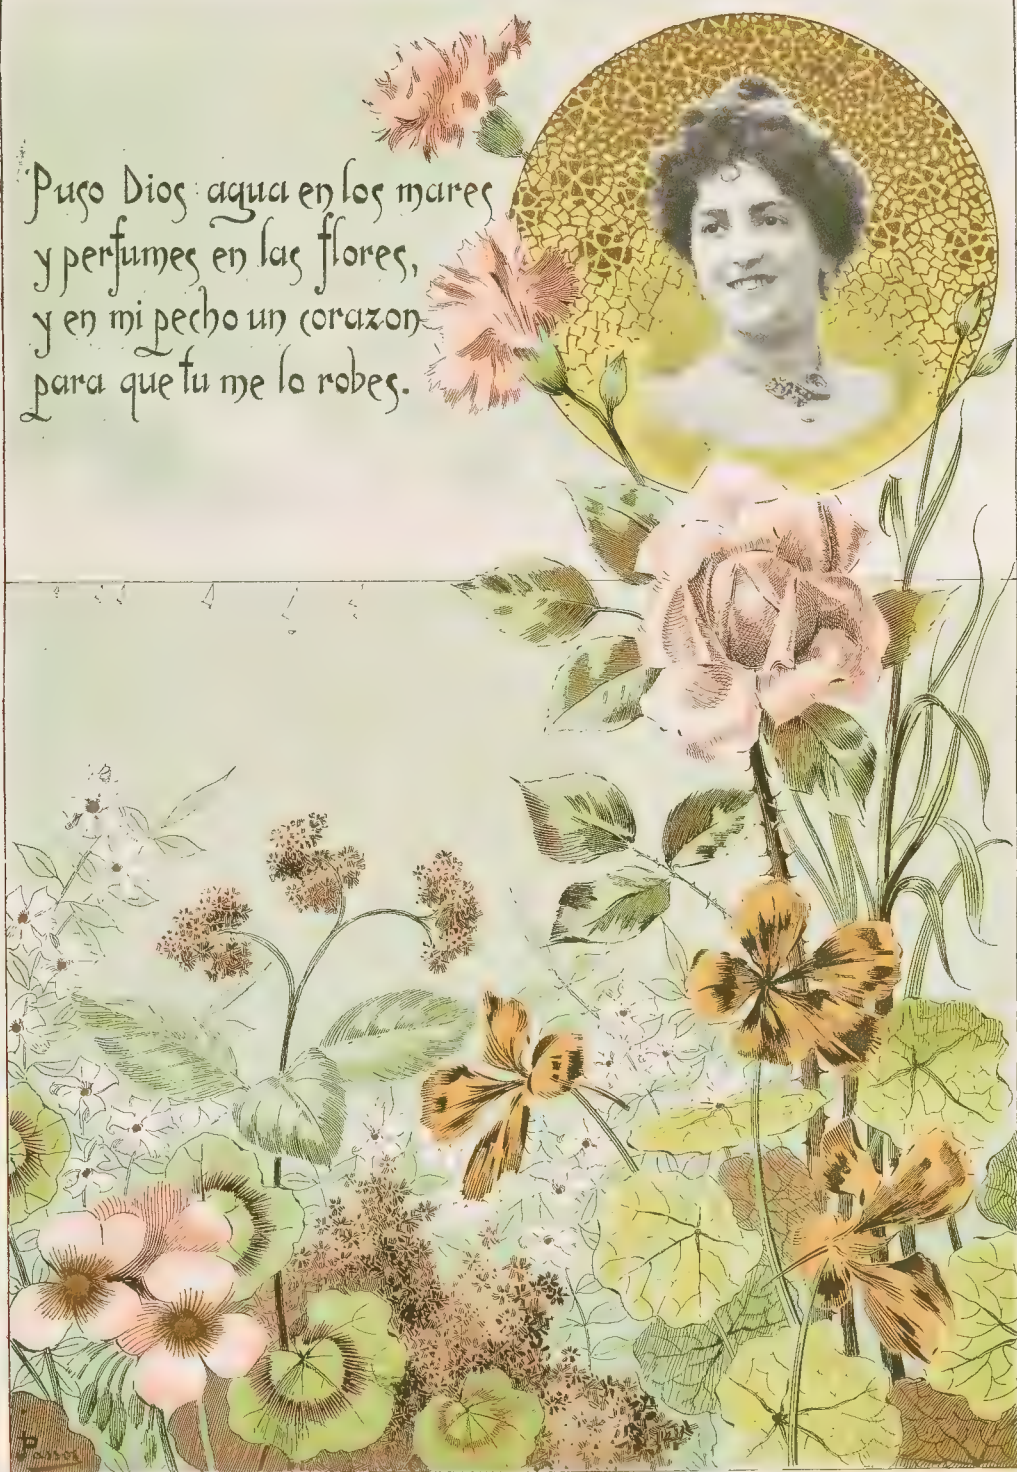 Puso Dios agua en los mares
y perfumes en las flores,
y en mi pecho un corazon
para que tu me lo robes.